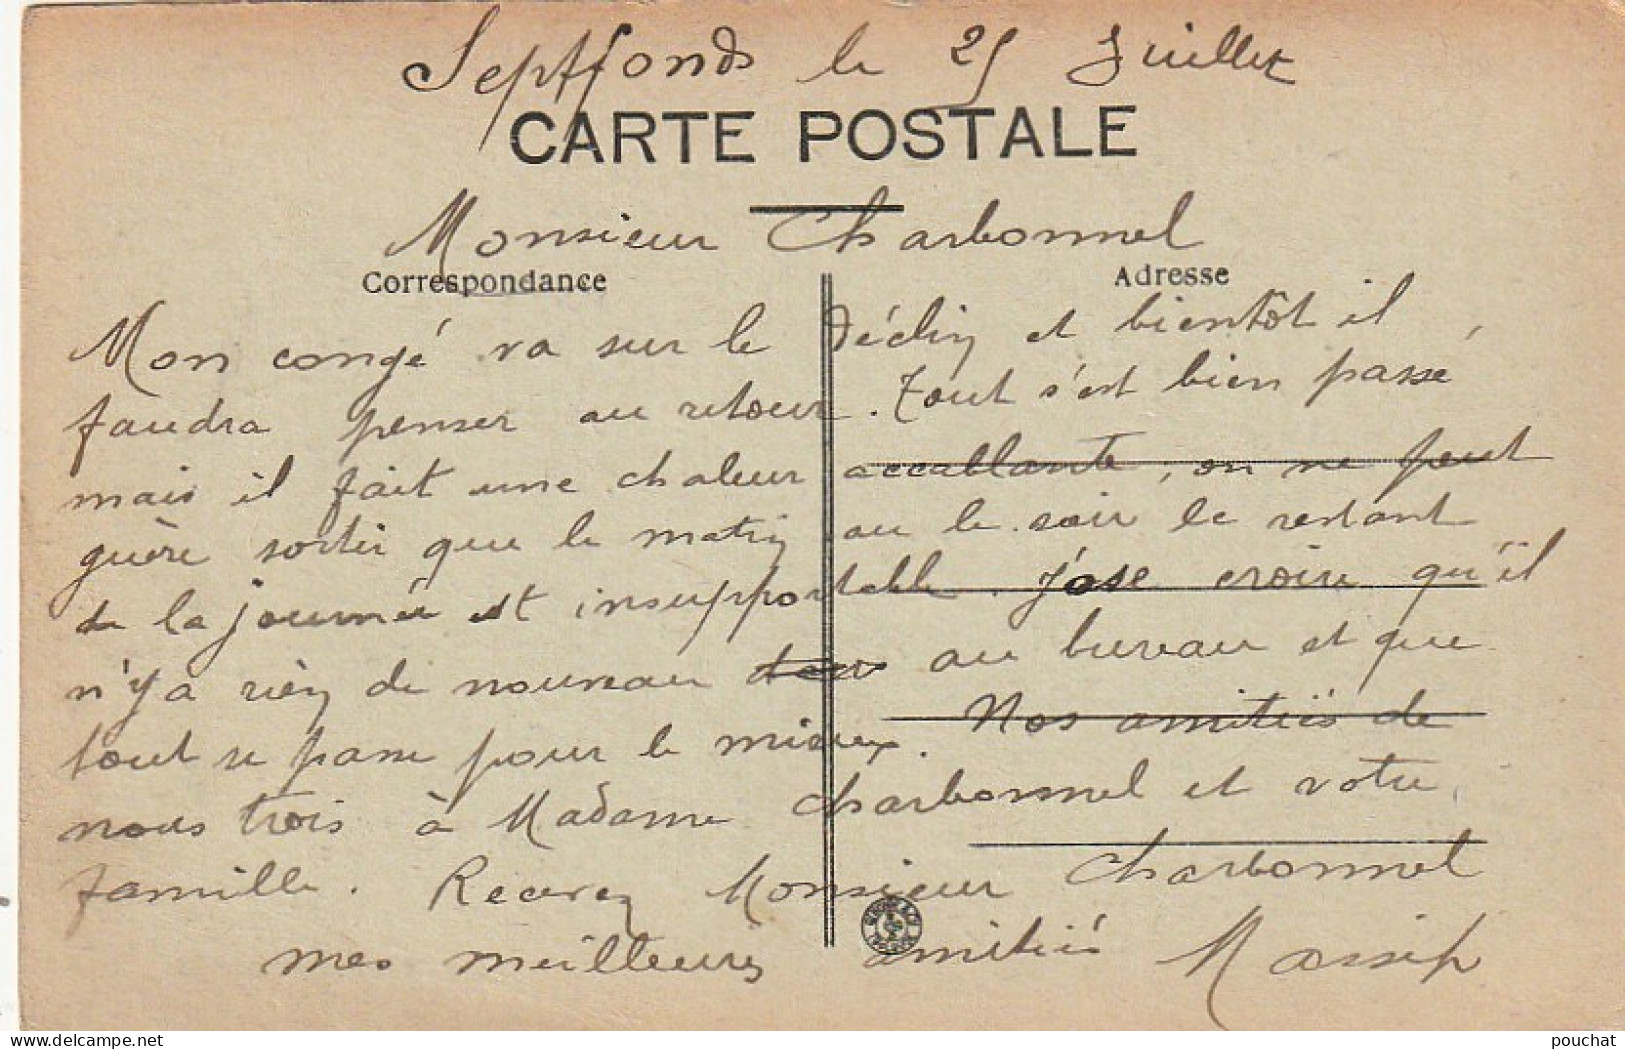 Septfonds le 25 Juillet
CARTE POSTALE
Monsieur Charbonnel
Correspondance
Adresse
Mon congé va sur le déclin et bientôt il
faudra penser au retour. Tout s'est bien passé
mais il fait une chaleur accallante, on ne peut
guère sortir que le matin ou le soir le restant
de la journée est insupportable. J'ose croire qu'il
n'y a rien de nouveau au bureau et que
tout se passe pour le mieux. Nos amitiés de
nous trois à Madame Charbonnel et votre
famille. Recevez Monsieur Charbonnel
mes meilleures amitiés Massip
delcampe.net
pouchat